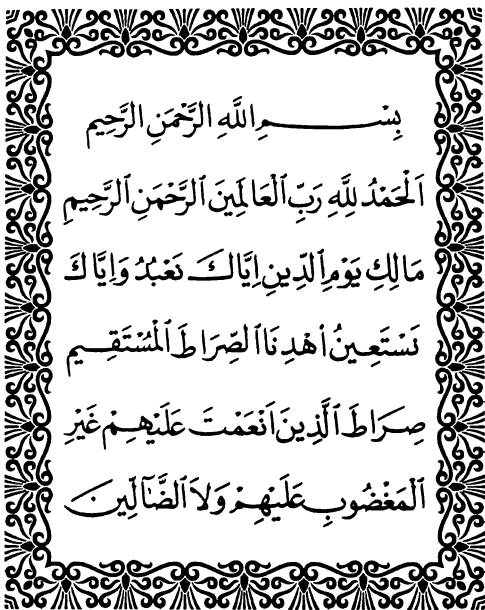 بِسْـــــمِ اللَّهِ الرَّحْمَنِ الرَّحِيمِ
اَلْحَمْدُ لِلَّهِ رَبِّ ٱلْعَالَمِينَ ٱلرَّحْمَنِ ٱلرَّحِيمِ
مَالِكِ يَوْمِ ٱلدِّينِ اِيَّاكَ نَعْبُدُ وَاِيَّاكَ
نَسْتَعِينُ اُهْدِنَا ٱلصِّرَاطَ ٱلْمُسْتَقِيم
صِرَاطَ ٱلَّذِينَ اَنْعَمْتَ عَلَيْهِمْ غَيْرِ
ٱلْمَغْضُوبِ عَلَيْهِمْ وَلَا ٱلضَّآلِّينَ